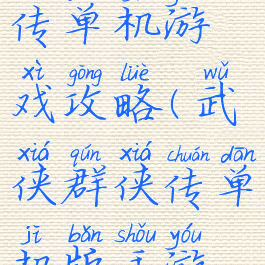 传单机游
xì gōng lüè wǔ
戏攻略(武
xiá qún xiá chuán dān
侠群侠传单
jī bǎn shǒu yóu
机版手游